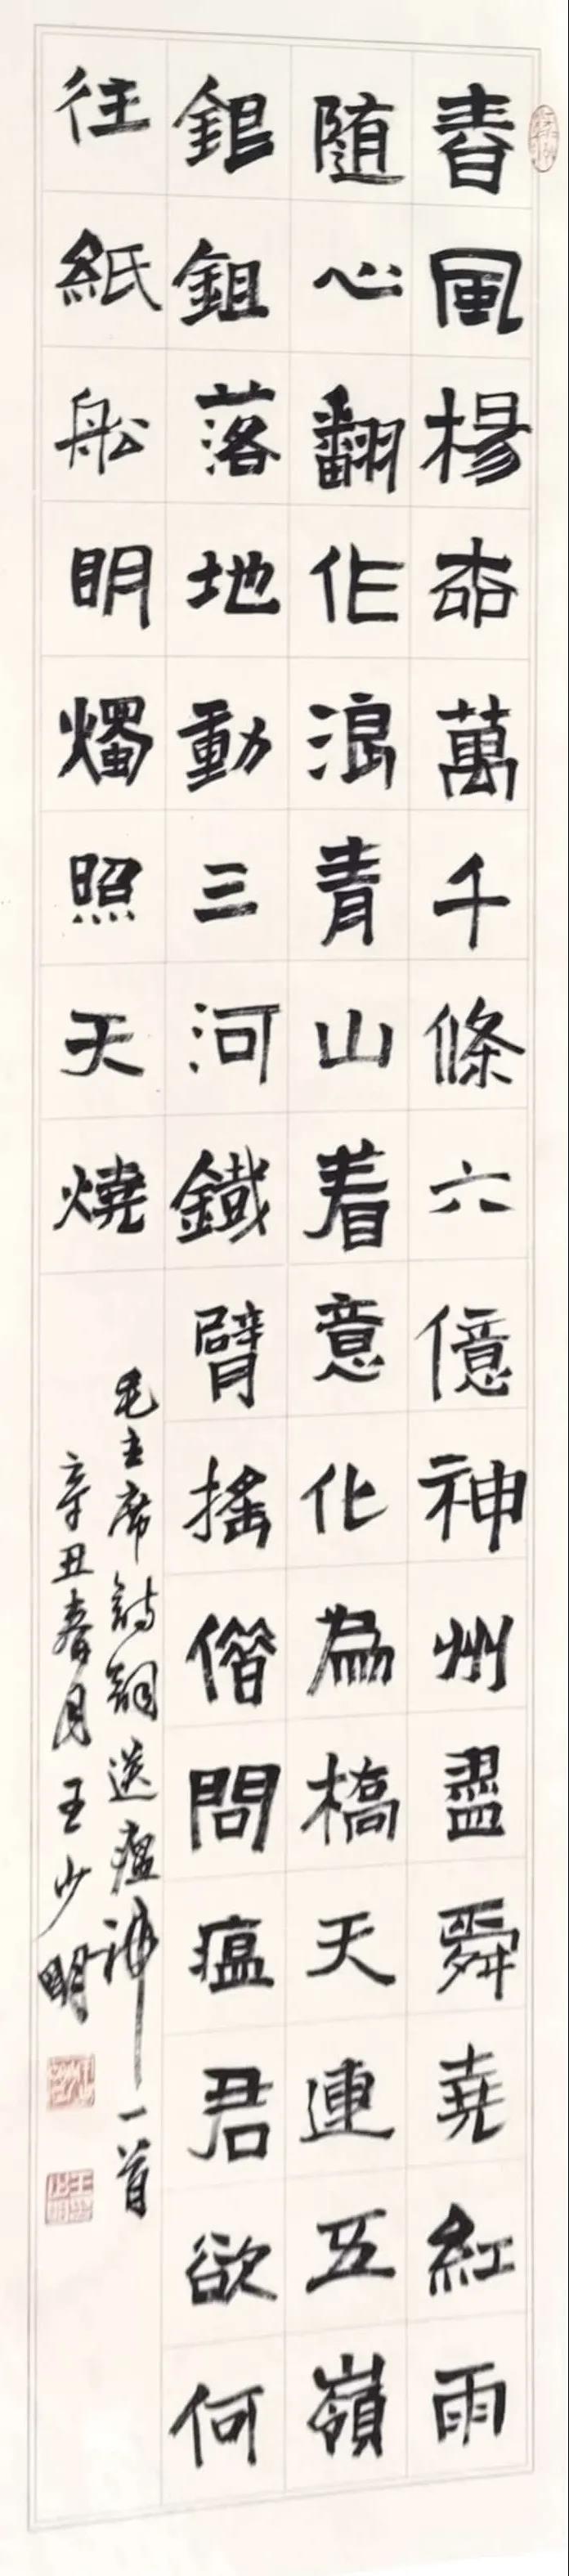 春風楊柳萬千條六億神州盡舜堯紅雨
随心翻作浪青山着意化為橋天連五嶺
銀鉏落地動三河鐵臂搖借問瘟君欲何
往紙船明燭照天燒
毛主席詩詞送瘟神一首
辛丑春月王少明